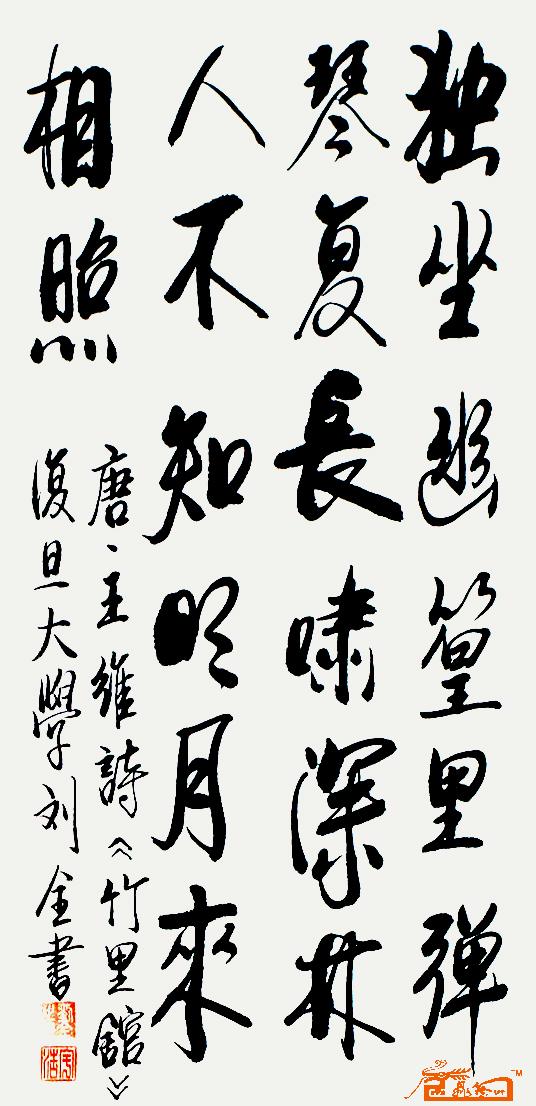 独坐幽篁里弹
琴复長啸深林
人不知明月來
相照
唐、王維詩《竹里舘》
復旦大學刘金書